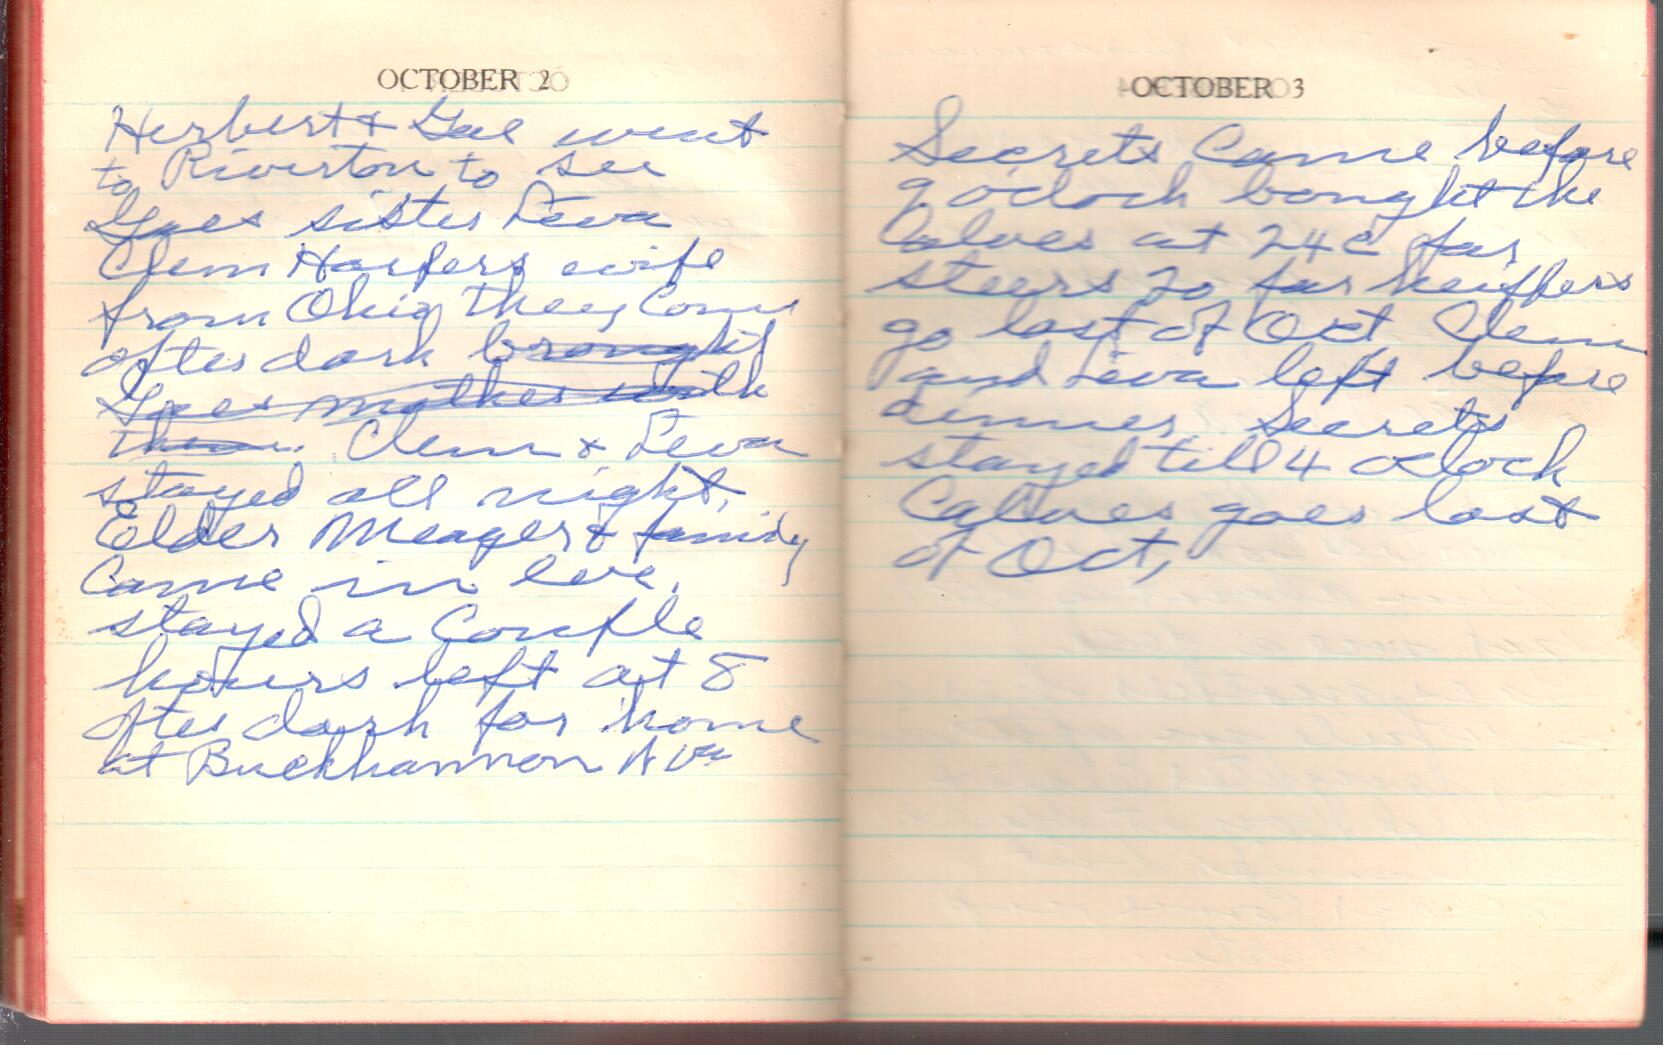 OCTOBER 2
Herbert & Gae went
to Riverton to see
Gaes sister Leva
Clem Harpers wife
from Ohio they Come
after dark brought
Gaes mother with
them. Clem & Leva
stayed all night.
Elder Meager & family
Came in eve,
stayed a Couple
hours left at 8
after dark for home
at Buckhannon W Va
OCTOBER 3
Secrets Came before
9 oclock bought the
Calves at 24c for
steers 20 for heiffers
go last of Oct Clem
and Leva left before
dinner, Secrets
stayed till 4 oclock
Calves goes last
of Oct,